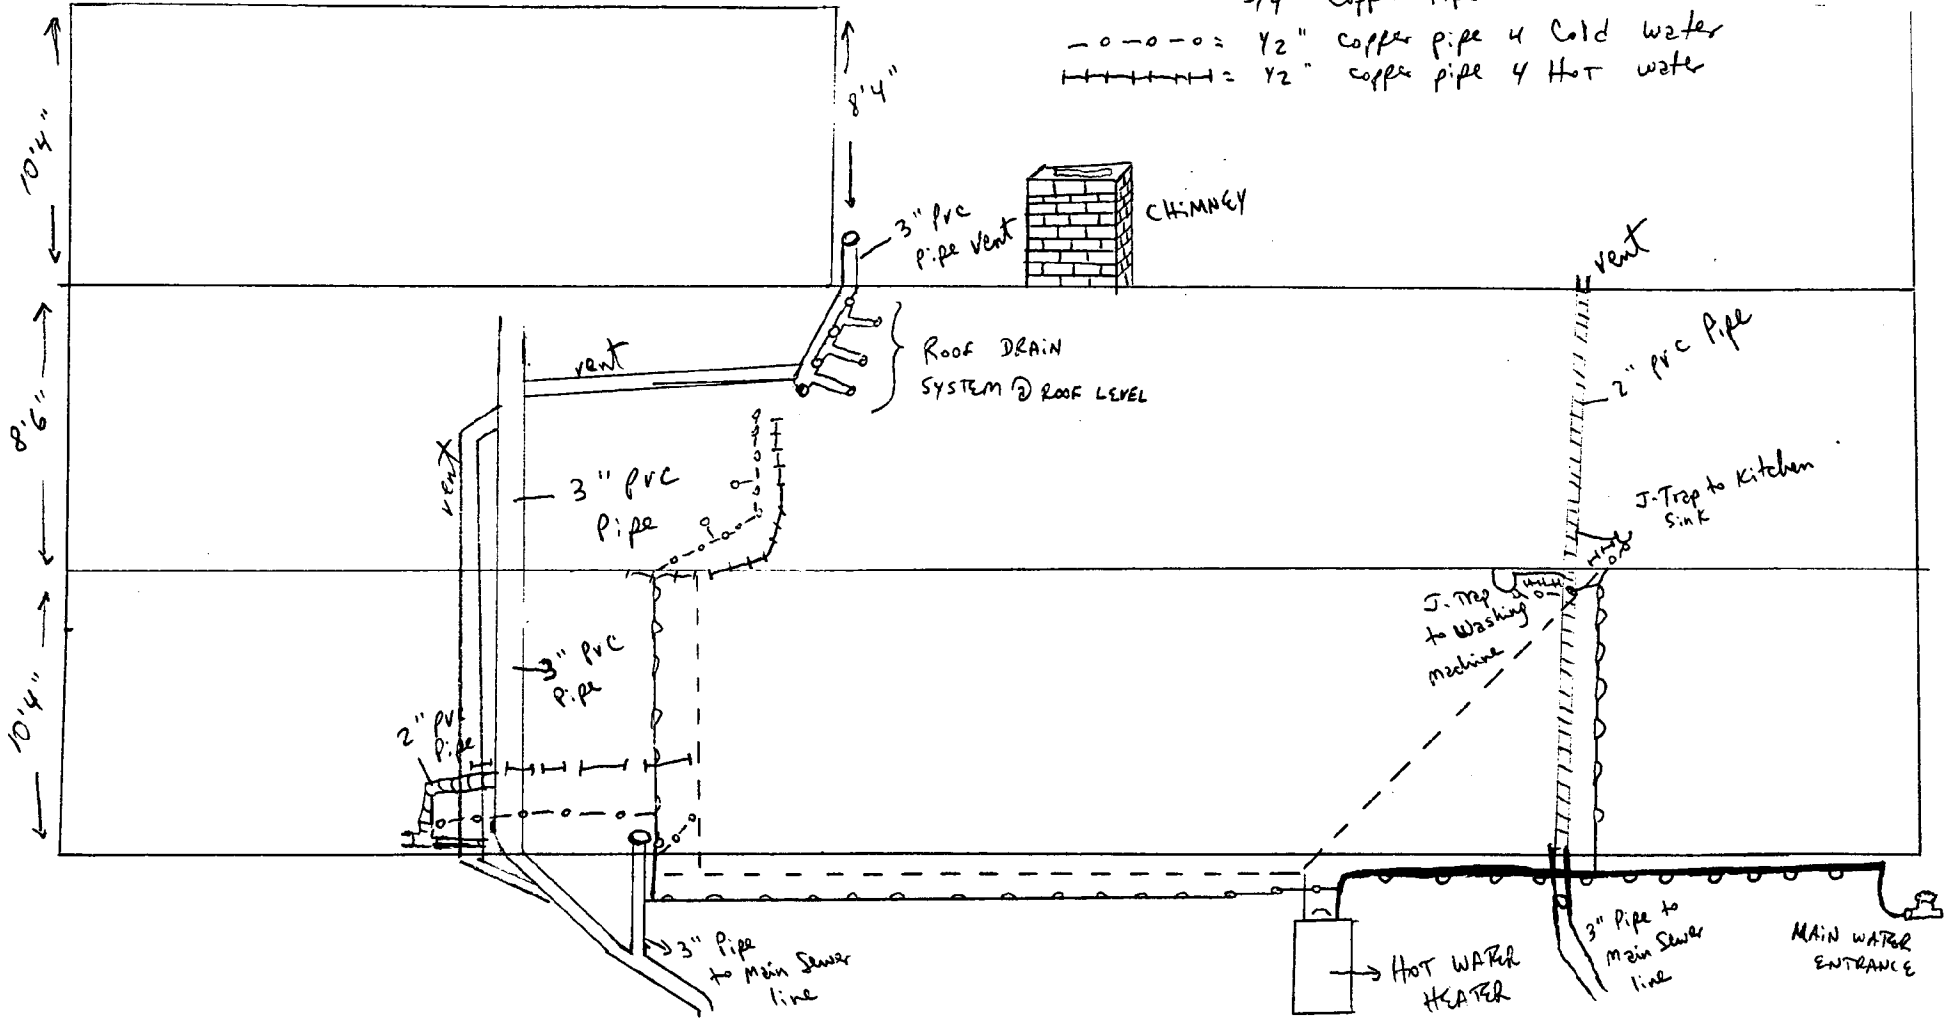 3/4" Copper Pipe
- o - o - o = 1/2" copper pipe 4 Cold water
= 1/2" copper pipe 4 HoT water
10'4"
8'4"
3" PVC
Pipe Vent
CHIMNEY
vent
2" PVC Pipe
ROOF DRAIN
SYSTEM @ ROOF LEVEL
vent
8'6"
vent
3" PVC
Pipe
J-Trap to Kitchen
Sink
J-Trap
to Washing
machine
3" PVC
Pipe
10'4"
2" PVC
Pipe
3" Pipe
to Main Sewer
line
HOT WATER
HEATER
3" Pipe to
Main Sewer
line
MAIN WATER
ENTRANCE